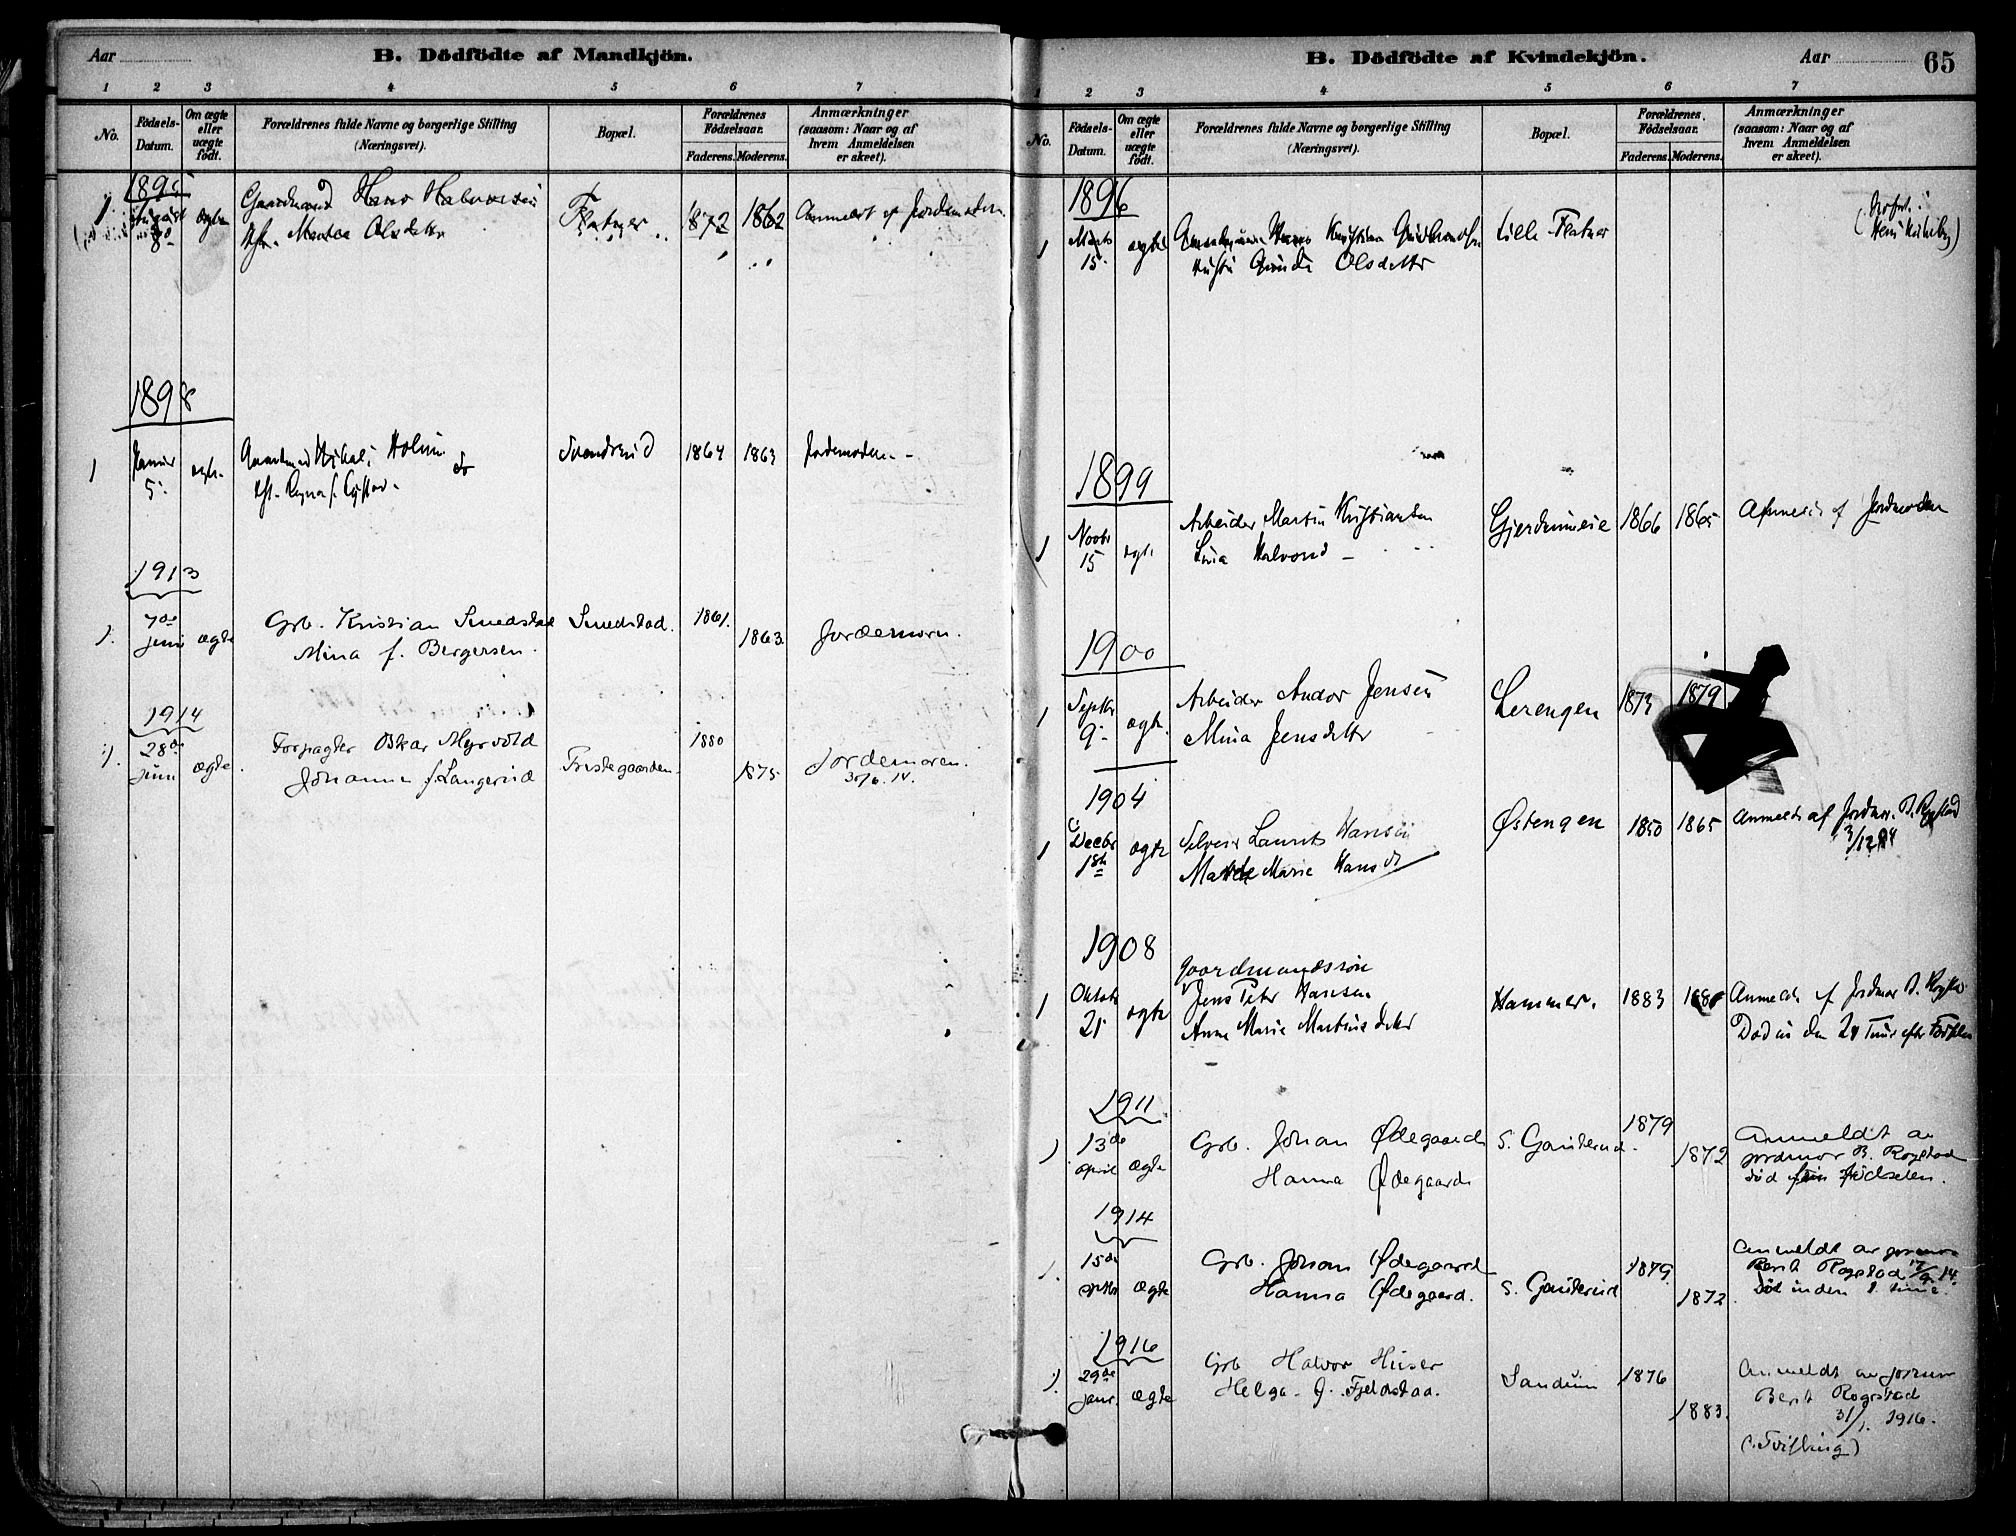 Aar
B. Dödfödte af Mandkjön.
1 2 3 4 5 6 7
No.
Födsels-Datum.
Om ægte eller uægte födt.
Forældrenes fulde Navne og borgerlige Stilling (Næringsvei).
Bopæl.
Forældrenes Födselsaar.
Faderens. Moderens.
Anmærkninger (saasom: Naar og af hvem Anmeldelsen er skeet).
1 August ægte Gaardmand Hans 1872 1862 Anmeldt af Jordemoderen
Olsdatter
1898
1 5. Holm 1864 1863 Jordemoderen
1913
1. 7de juni ægte Grb. Kristian Smedstad Smedstad. 1861. 1863. Jordemoren.
Mina f. Bergersen.
1914
1). 28de juni ægte. Forpagter Oskar Myrvold 1880 1875. Jordemoren.
Johanne f. Langerud 30/6. 14.
B. Dödfödte af Kvindekjön.
Aar
65
1 2 3 4 5 6 7
No.
Födsels-Datum.
Om ægte eller uægte födt.
Forældrenes fulde Navne og borgerlige Stilling (Næringsvei).
Bopæl.
Forældrenes Födselsaar.
Faderens. Moderens.
Anmærkninger (saasom: Naar og af hvem Anmeldelsen er skeet).
1896
1 Marts 15. ægte Kristian Lille Flatner
Olsdatter
1899
1 Novbr 15 ægte Arbeider Martin Kristiansen Gjerdrumseie 1866 1865 Anmeldt af Jordmoderen
Lina Halvorsd
1900
1 Septbr 9. ægte Arbeider Andor Jensen Lerengen 1873 1879
Mina Jensdatter
1904
1 Decbr 1ste ægte Selveier Laurits Hansen Østengen 1850 1865 Anmeldt af Jordmor B. Rogstad
Marie Hansd 3/12 04
1908
Gaardmandssøn
1 Oktob 21 ægte Jens Peter Hansen Hammer. 1883 Anmeldt af Jordmor B. Rogstad
Anne Marie Martinsdatter Død in den 24 Timer efter Fødselen
1911
1) 13de april ægte Grb. Johan Ødegaard S. Gauterud. 1879 1872 Anmeldt av
Hanna Ødegaard jordmor B. Rogstad
død fødselen.
1914
1. 15de septbr ægte Grb. Johan Ødegaard S. Gauterud 1879. 1872. Anmeldt av jormor
Hanna Ødegaard. Berit Rogstad 17/9. 14.
Død inden 1. time.
1916
1). 29de janr. ægte Grb Halvor Huser Sandum 1876 1883. Anmeldt av jormor
Helga f. Fjeldstad. Berit Rogstad
31/1. 1916.
(Tvilling)